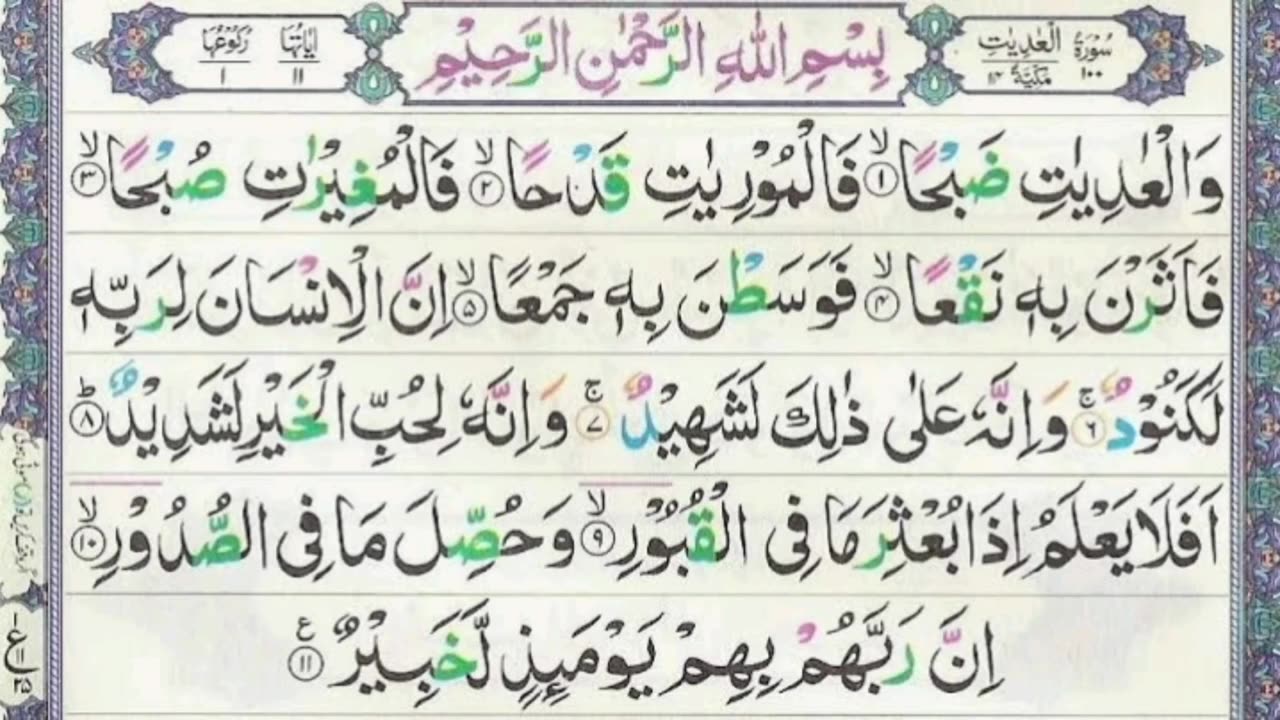 سُوْرَةُ الْعٰدِيٰتِ ١٠٠ مَكِّيَّةٌ ١٤
بِسْمِ اللّٰهِ الرَّحْمٰنِ الرَّحِيْمِ
اٰيَاتُهَا ١١ رُكُوْعُهَا ١
وَالْعٰدِيٰتِ ضَبْحًا ۙ﴿١﴾ فَالْمُوْرِيٰتِ قَدْحًا ۙ﴿٢﴾ فَالْمُغِيْرٰتِ صُبْحًا ۙ﴿٣﴾
فَاَثَرْنَ بِهٖ نَقْعًا ۙ﴿٤﴾ فَوَسَطْنَ بِهٖ جَمْعًا ۙ﴿٥﴾ اِنَّ الْاِنْسَانَ لِرَبِّهٖ
لَكَنُوْدٌ ۚ﴿٦﴾ وَاِنَّهٗ عَلٰى ذٰلِكَ لَشَهِيْدٌ ۚ﴿٧﴾ وَاِنَّهٗ لِحُبِّ الْخَيْرِ لَشَدِيْدٌ ؕ﴿٨﴾
اَفَلَا يَعْلَمُ اِذَا بُعْثِرَ مَا فِى الْقُبُوْرِ ۙ﴿٩﴾ وَحُصِّلَ مَا فِى الصُّدُوْرِ ۙ﴿١٠﴾
اِنَّ رَبَّهُمْ بِهِمْ يَوْمَئِذٍ لَّخَبِيْرٌ ﴿١١﴾ ع